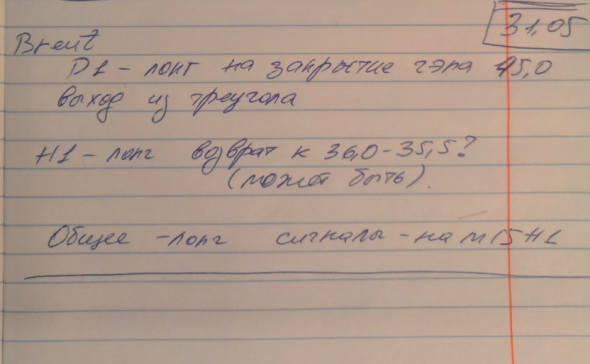 31,05
Brent
D1 - лонг на закрытие гэпа 45,0
выход из треугола
H1 - лонг возврат к 36,0-35,5?
(может быть).
Общее - лонг сигналы - на м15 H1